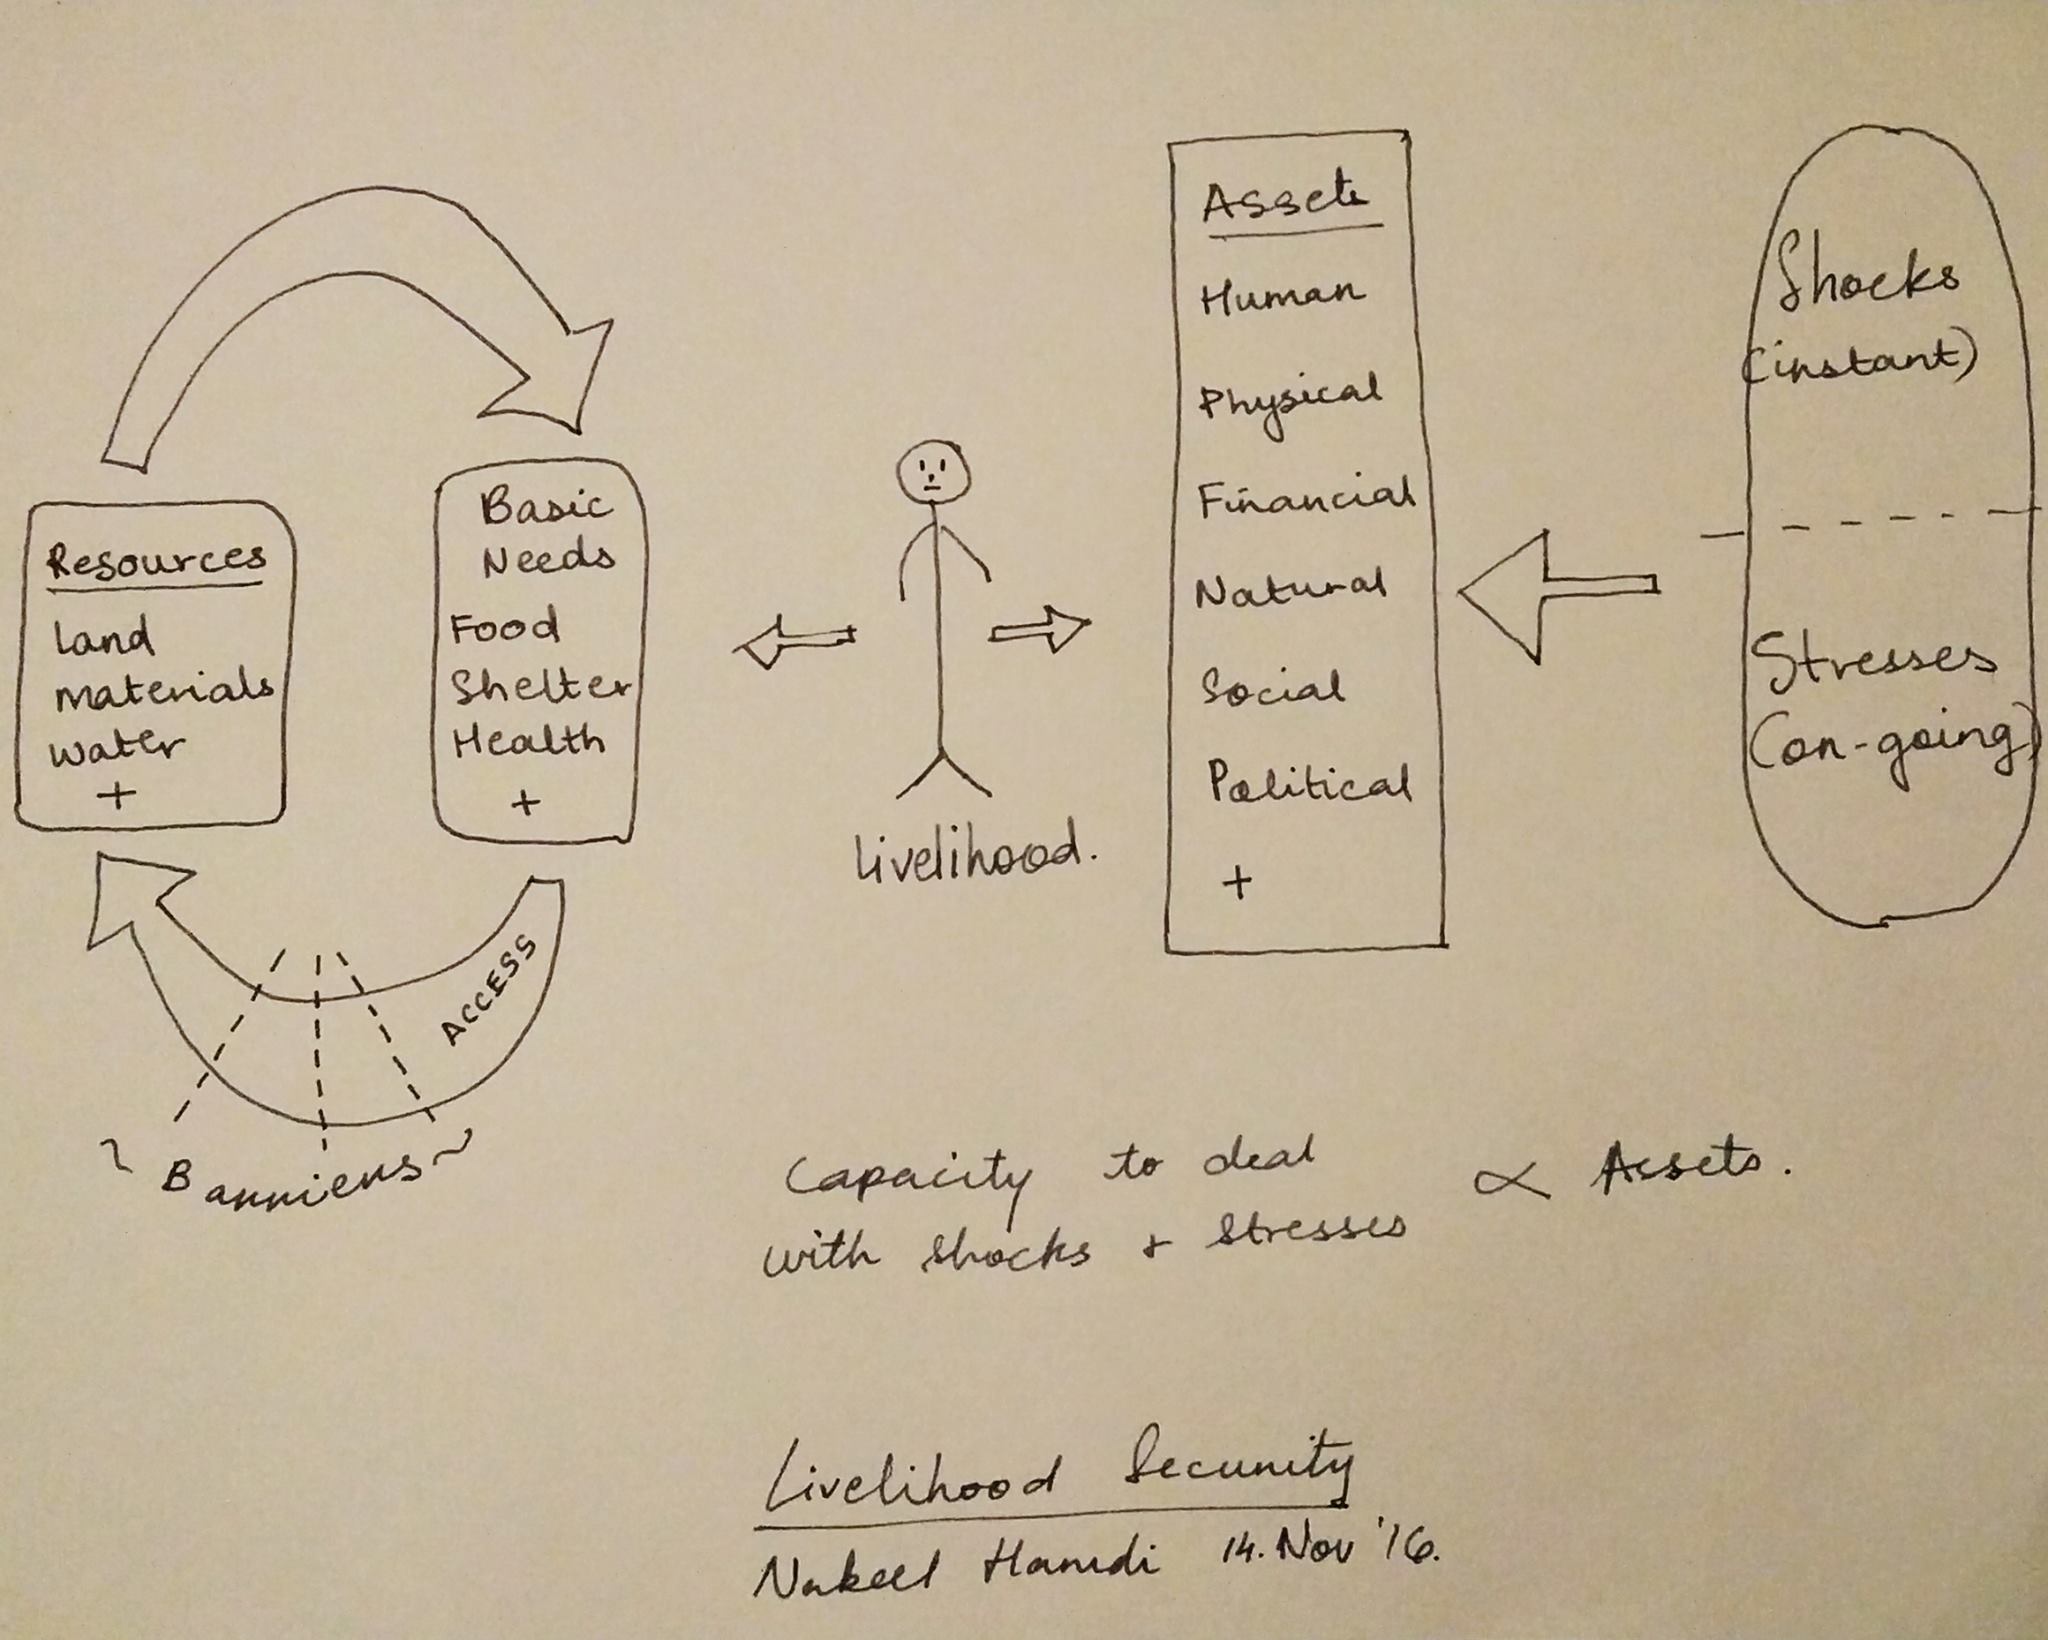 Resources
Land
Materials
Water
+
Basic
Needs
Food
Shelter
Health
+
ACCESS
Barriers
Livelihood.
Assets
Human
Physical
Financial
Natural
Social
Political
+
Shocks
(instant)
Stresses
(on-going)
Capacity to deal
with shocks + stresses ∝ Assets.
Livelihood Security
Nabeel Hamdi 14. Nov '16.